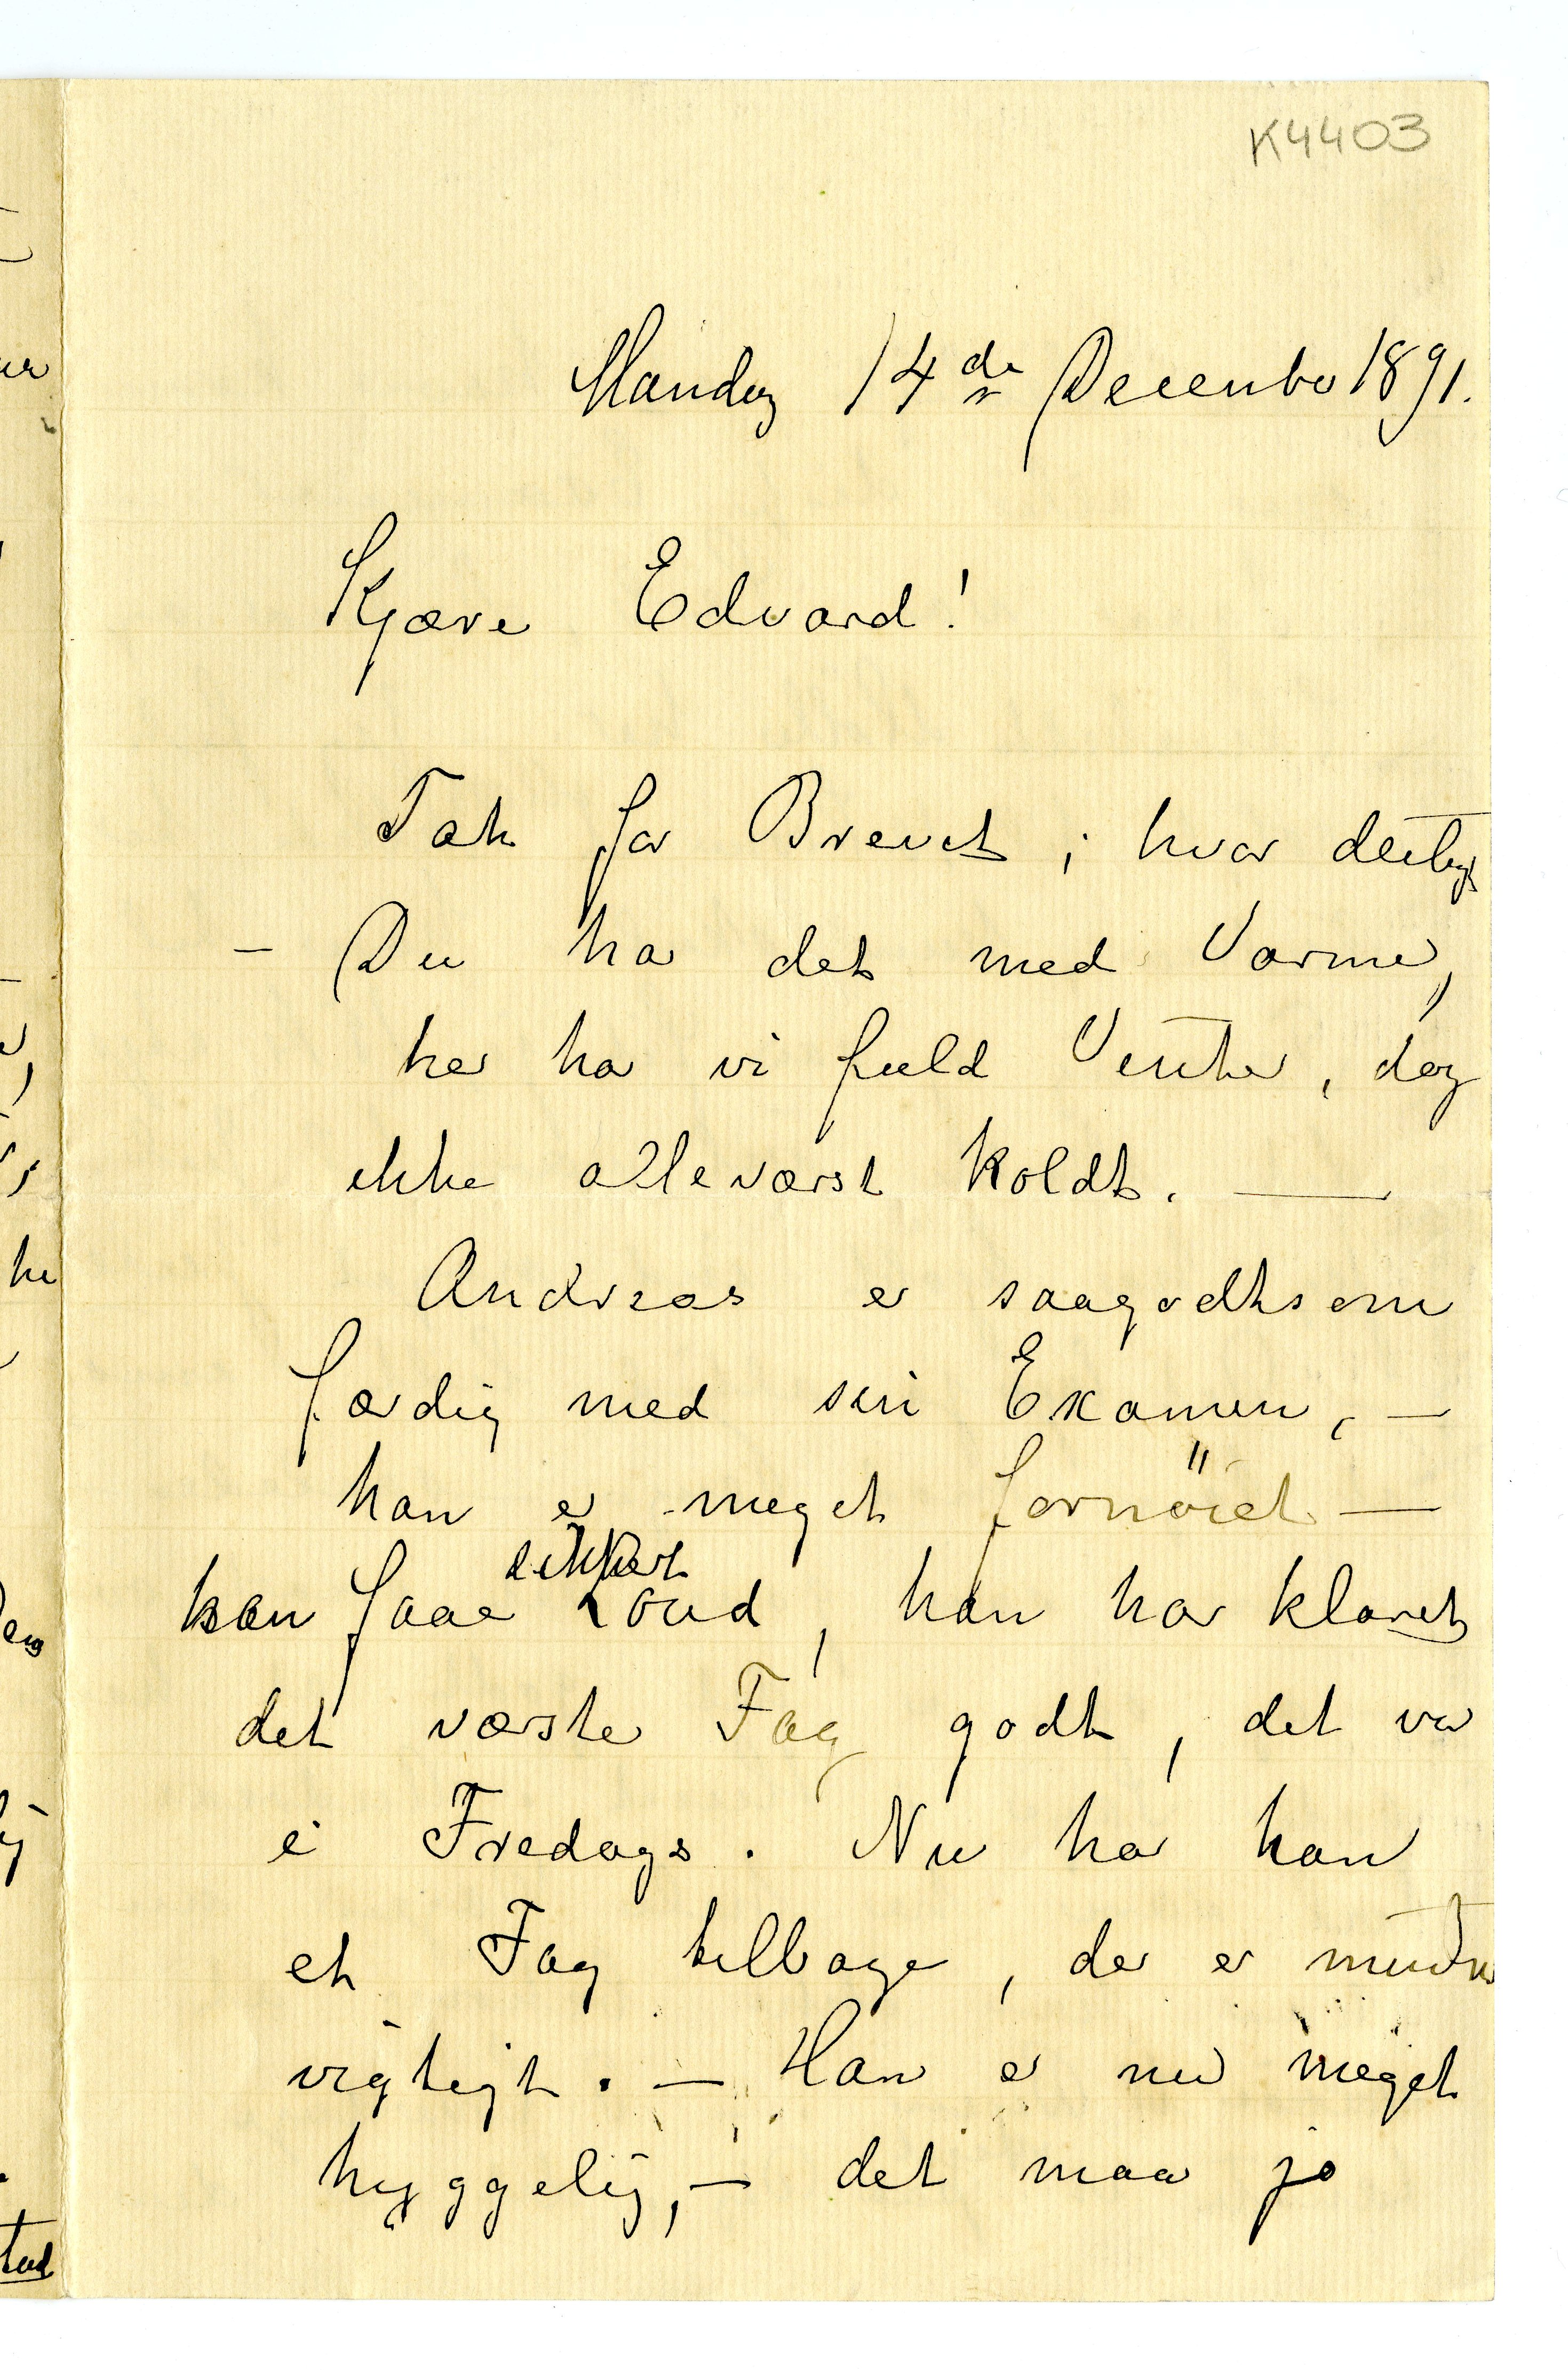 K4403
Mandag 14de December 1891.
Kjære Edvard!
Tak for Brevet; hvor deiligt
– Du har det med Varme,
her har vi fuld Vinter, dog
ikke alleværst koldt. —
Andreas er saagodtsom
færdig med sin Examen, –
han er meget fornöiet –
han faar sikkert Loud, han har klaret
det værste Fag godt, det var
i Fredags. Nu har han
et Fag tilbage, der er mindre
vigtigt. – Han er nu meget
hyggelig, – det maa jo